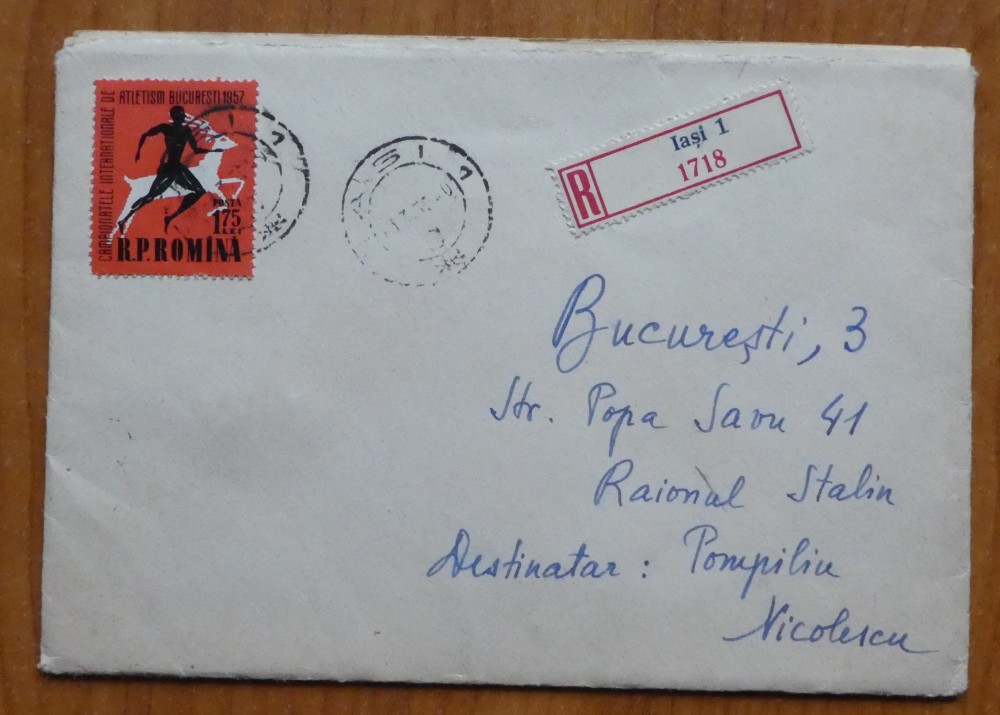 CAMPIONATELE INTERNATIONALE DE
ATLETISM BUCURESTI 1957
POSTA
175
LEI
R.P.ROMINA
IASI 1
R
Iași 1
1718
București, 3
Str. Popa Savu 41
Raionul Stalin
Destinatar : Pompiliu
Nicolescu